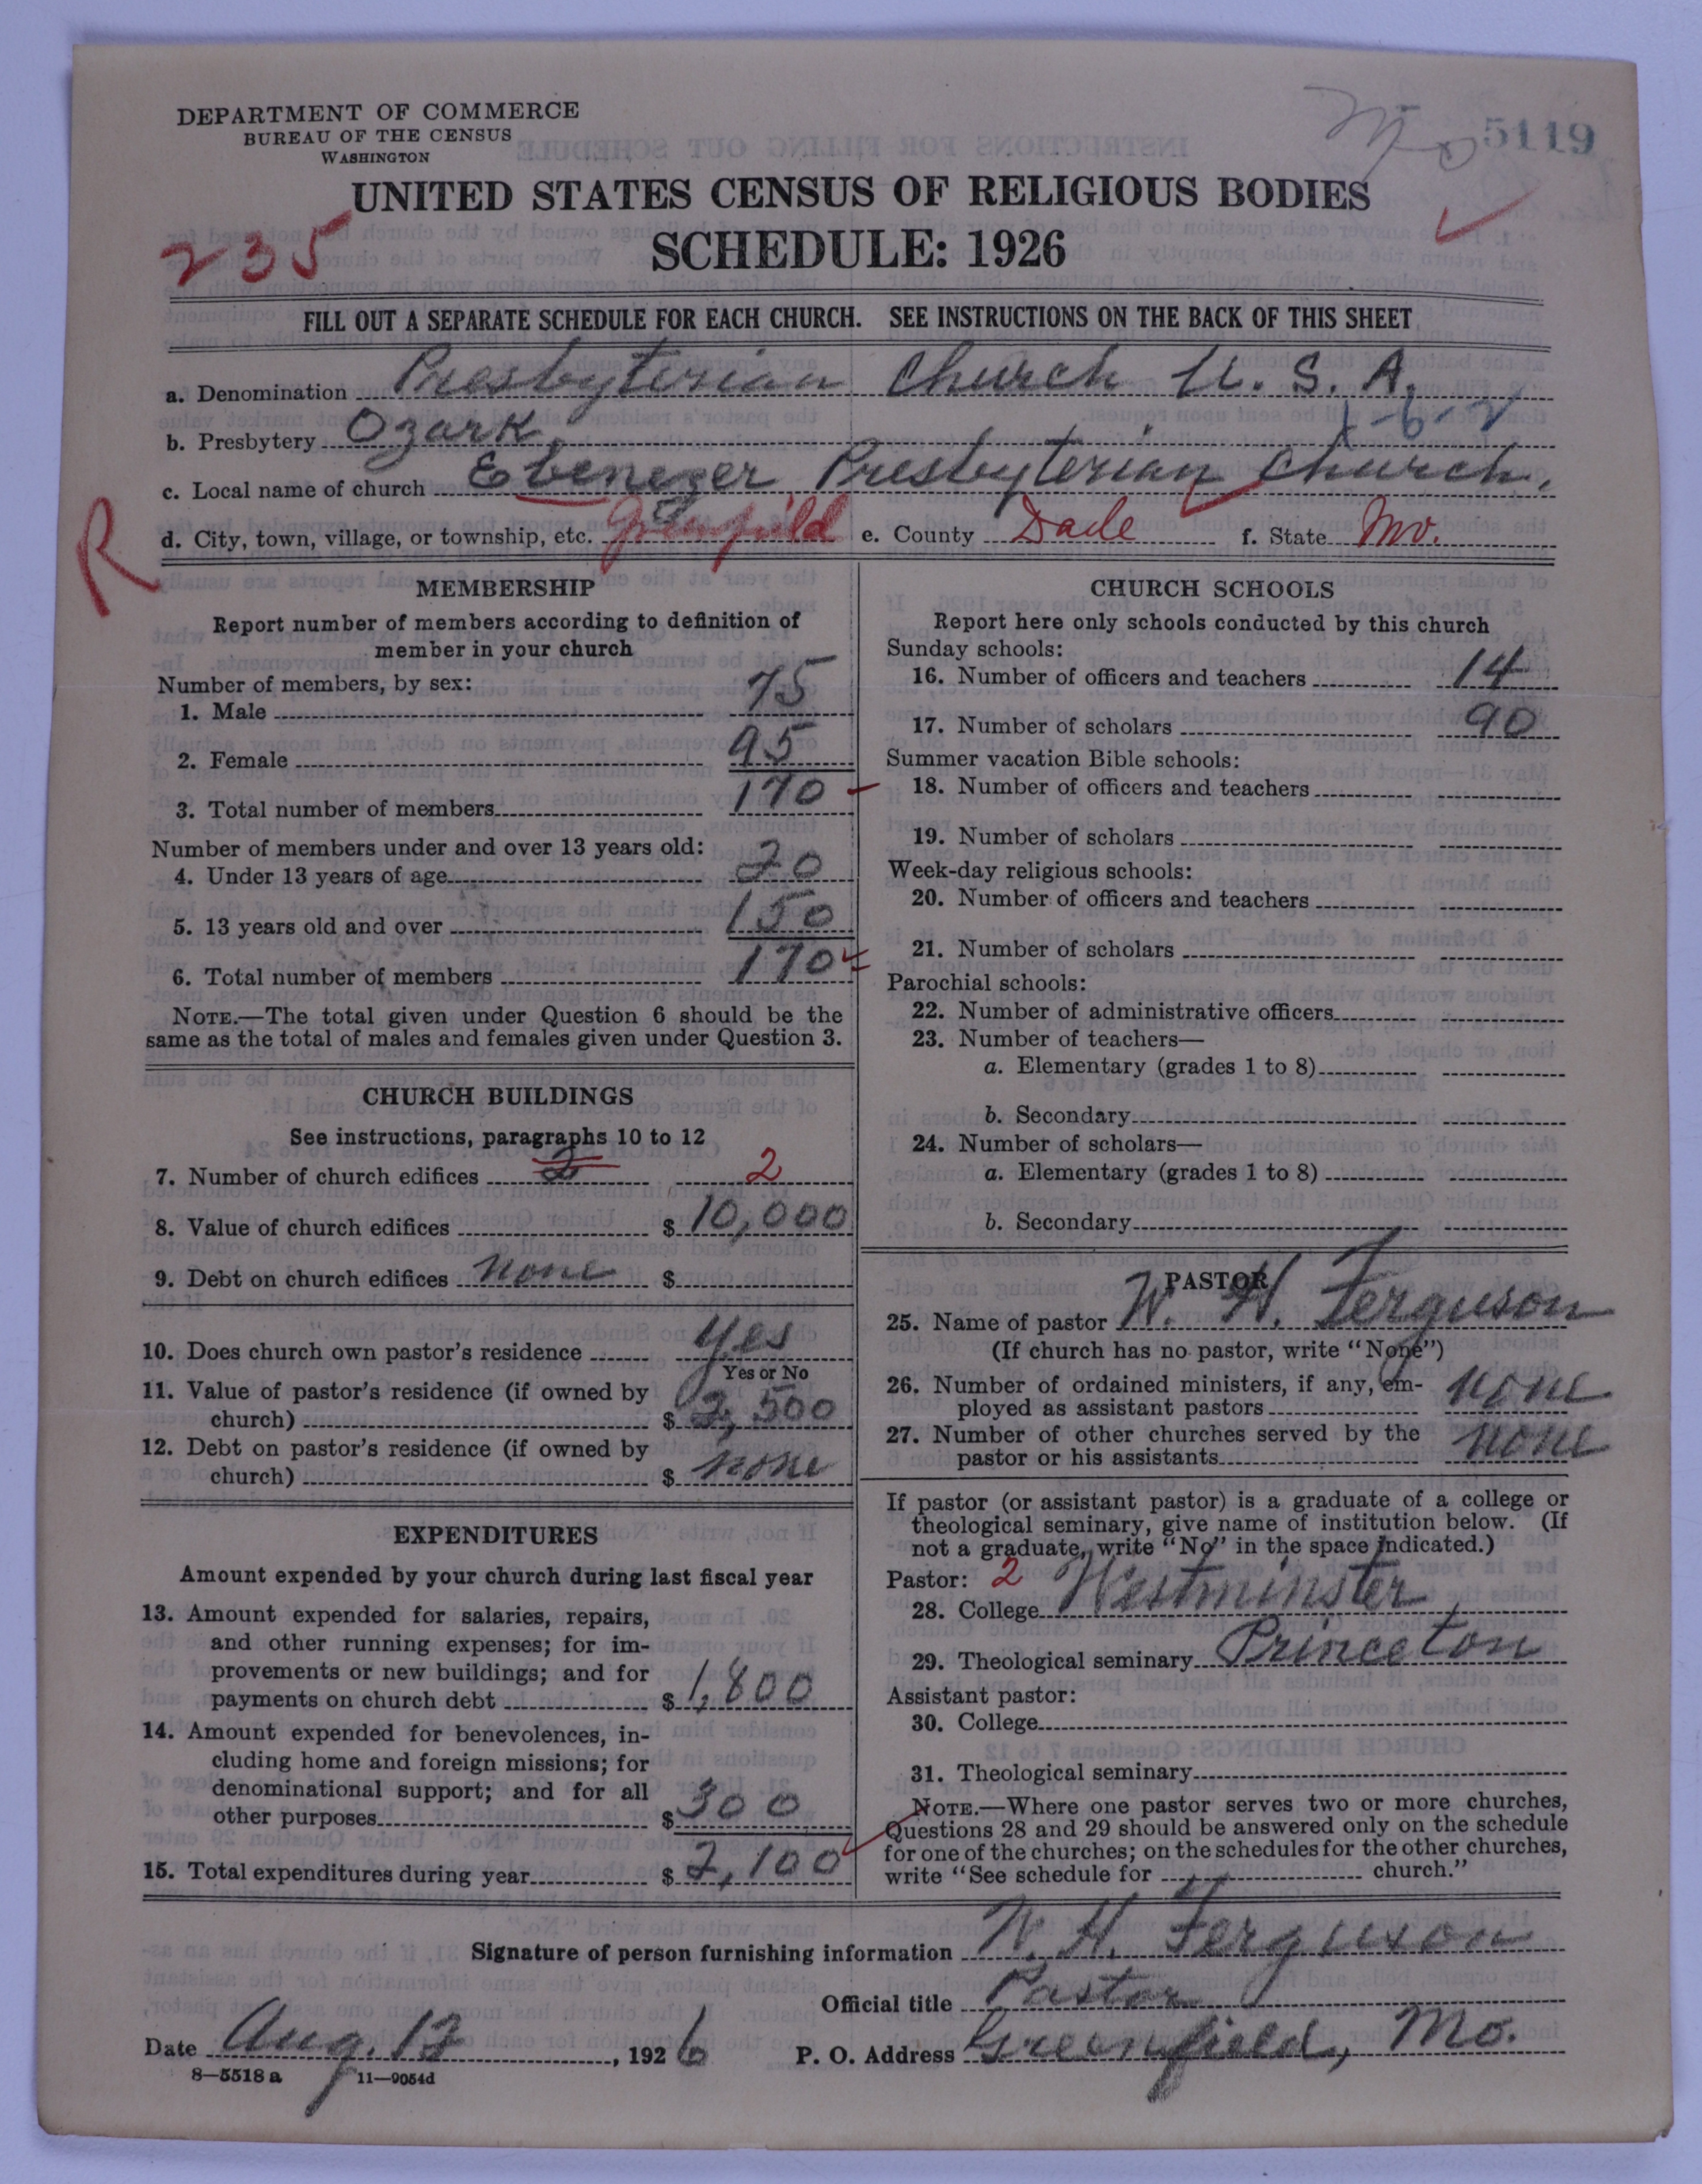 DEPARTMENT OF COMMERCE
BUREAU OF THE CENSUS
WASHINGTON
Mo 5119
UNITED STATES CENSUS OF RELIGIOUS BODIES
235
SCHEDULE: 1926
FILL OUT A SEPARATE SCHEDULE FOR EACH CHURCH. SEE INSTRUCTIONS ON THE BACK OF THIS SHEET
a. Denomination Presbyterian Church U.S.A.
b. Presbytery Ozark 1-6-2
c. Local name of church Ebenezer Presbyterian Church.
R
d. City, town, village, or township, etc. Greenfield e. County Dade f. State Mo.
MEMBERSHIP
Report number of members according to definition of
member in your church
Number of members, by sex:
1. Male 75
2. Female 95
3. Total number of members 170
Number of members under and over 13 years old:
4. Under 13 years of age 20
5. 13 years old and over 150
6. Total number of members 170
NOTE.—The total given under Question 6 should be the
same as the total of males and females given under Question 3.
CHURCH BUILDINGS
See instructions, paragraphs 10 to 12
7. Number of church edifices 2 2
8. Value of church edifices $ 10,000
9. Debt on church edifices none $
10. Does church own pastor's residence yes
Yes or No
11. Value of pastor's residence (if owned by
church) $ 2,500
12. Debt on pastor's residence (if owned by
church) $ none
EXPENDITURES
Amount expended by your church during last fiscal year
13. Amount expended for salaries, repairs,
and other running expenses; for im-
provements or new buildings; and for
payments on church debt $ 1,800
14. Amount expended for benevolences, in-
cluding home and foreign missions; for
denominational support; and for all
other purposes $ 300
15. Total expenditures during year $ 2,100
CHURCH SCHOOLS
Report here only schools conducted by this church
Sunday schools:
16. Number of officers and teachers 14
17. Number of scholars 90
Summer vacation Bible schools:
18. Number of officers and teachers
19. Number of scholars
Week-day religious schools:
20. Number of officers and teachers
21. Number of scholars
Parochial schools:
22. Number of administrative officers
23. Number of teachers—
a. Elementary (grades 1 to 8)
b. Secondary
24. Number of scholars—
a. Elementary (grades 1 to 8)
b. Secondary
PASTOR
25. Name of pastor W. H. Ferguson
(If church has no pastor, write "None")
26. Number of ordained ministers, if any, em-
ployed as assistant pastors none
27. Number of other churches served by the
pastor or his assistants none
If pastor (or assistant pastor) is a graduate of a college or
theological seminary, give name of institution below. (If
not a graduate, write "No" in the space indicated.)
Pastor: 2
28. College Westminster
29. Theological seminary Princeton
Assistant pastor:
30. College
31. Theological seminary
NOTE.—Where one pastor serves two or more churches,
Questions 28 and 29 should be answered only on the schedule
for one of the churches; on the schedules for the other churches,
write "See schedule for church."
Signature of person furnishing information W. H. Ferguson
Official title Pastor
Date Aug. 12, 1926 P. O. Address Greenfield, Mo.
8—5518 a 11—9054d